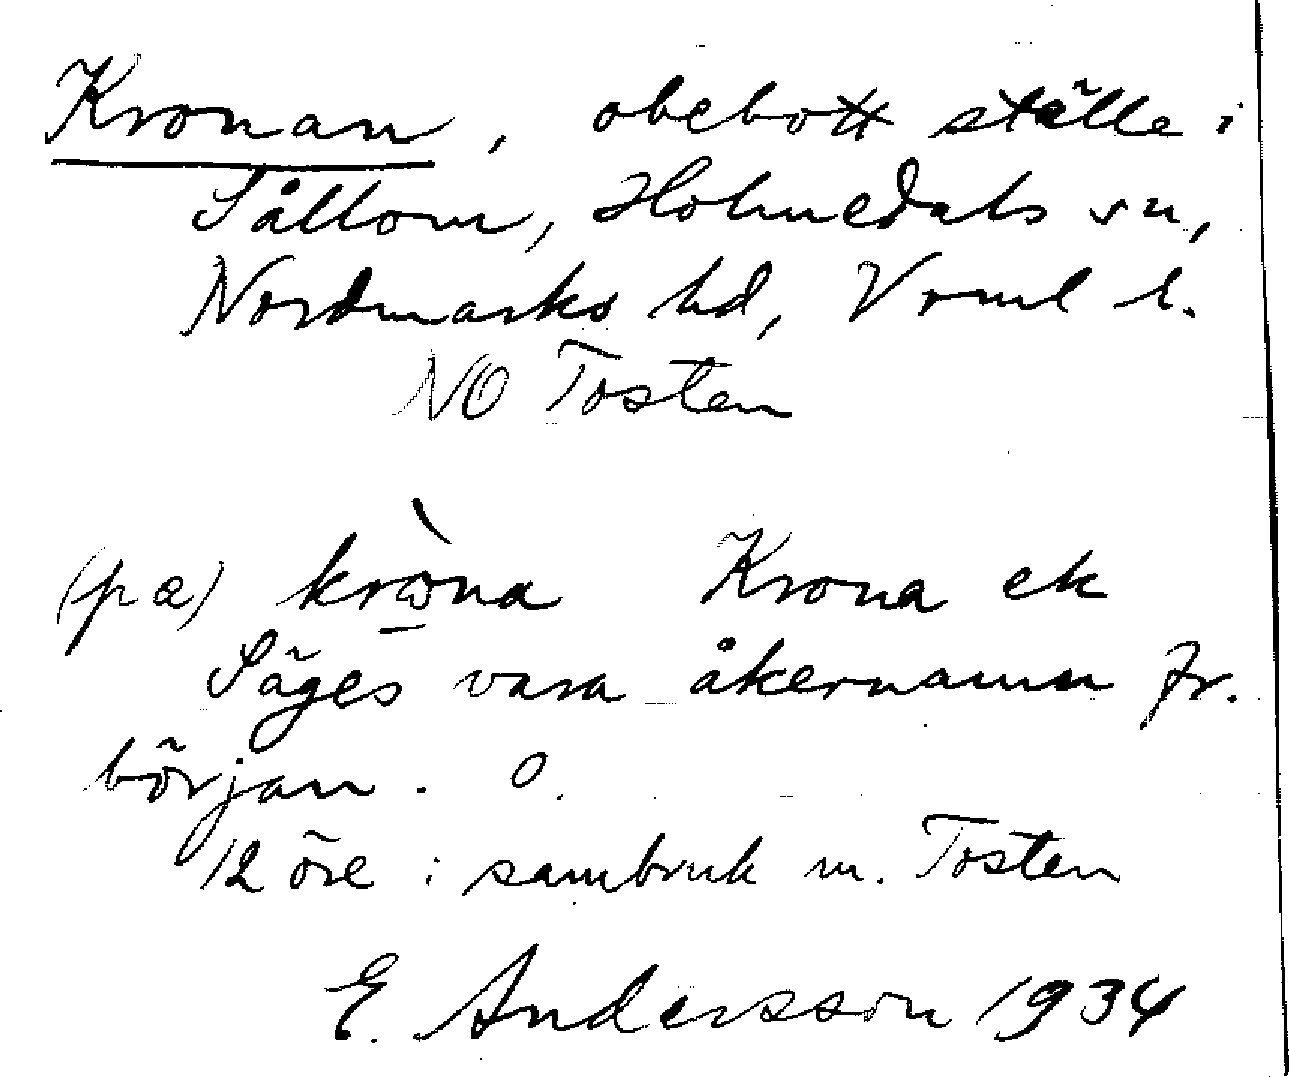 Kronan, obebott ställe i
Sållom, Holmedals sn,
Nordmarks hd, Vrml l.
NO Tosten
(pæ) krò̱na Krona ek
Säges vara åkernamn fr.
början. O.
12 öre i sambruk m. Tosten
E. Andersson 1934